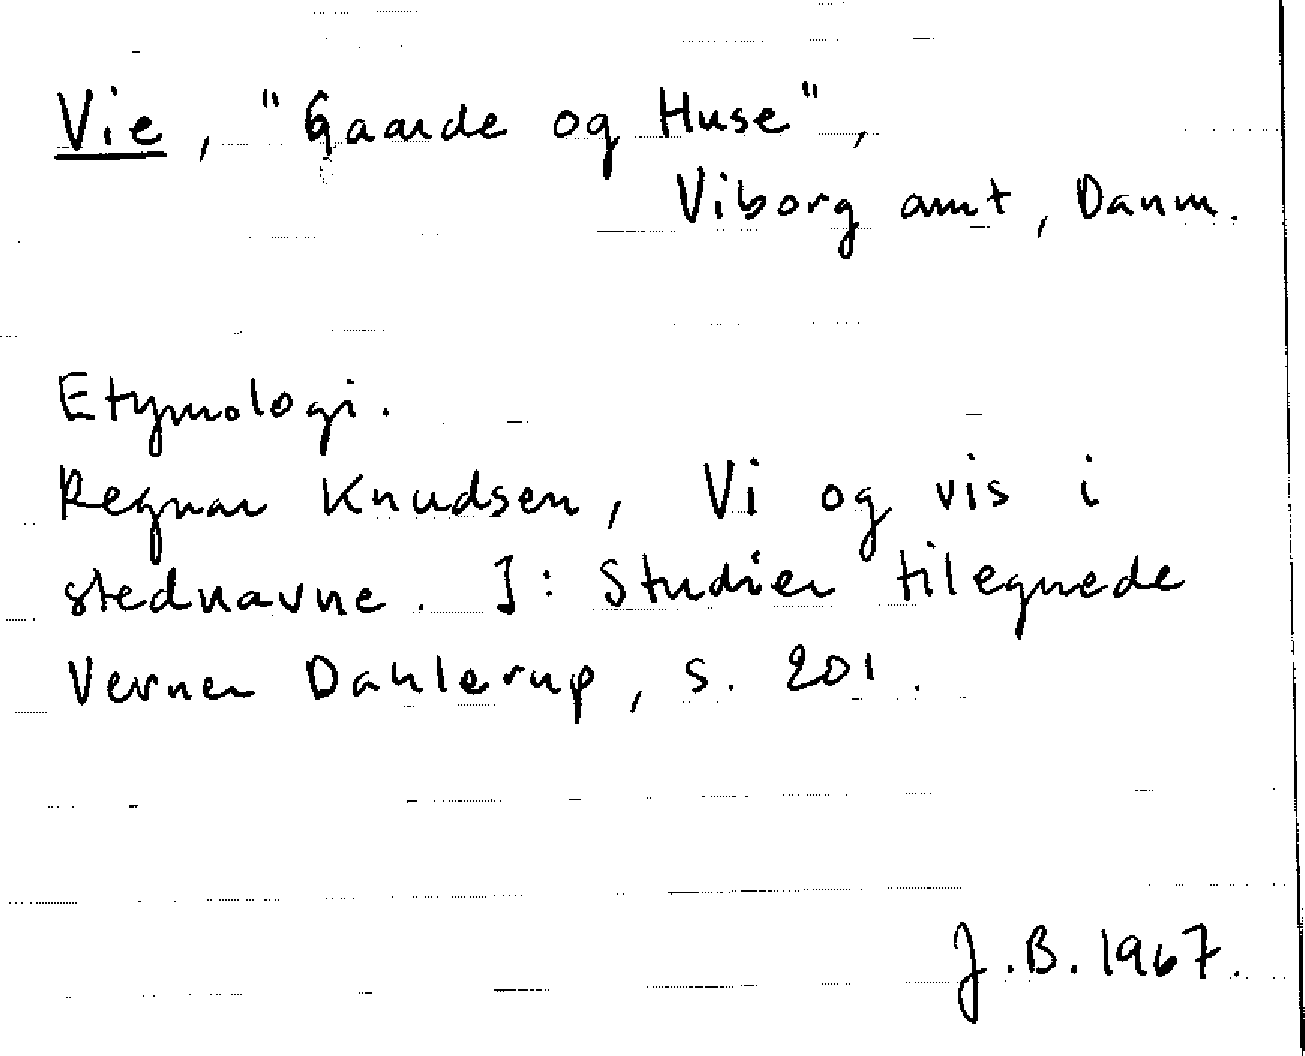 Vie, "Gaarde og Huse",
Viborg amt, Danm.
Etymologi.
Regnar Knudsen, Vi og vis i
stednavne. I: Studier tilegnede
Verner Dahlerup, s. 201.
J.B. 1967.